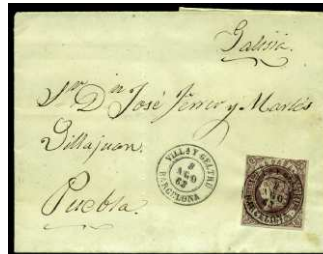 Galicia.
Sr. Dn José Ferrer y Martés
Villajuan.
VILLAN. Y GELTRU
3
AGO
63
BARCELONA
AGO
BARCELONA
Puebla.